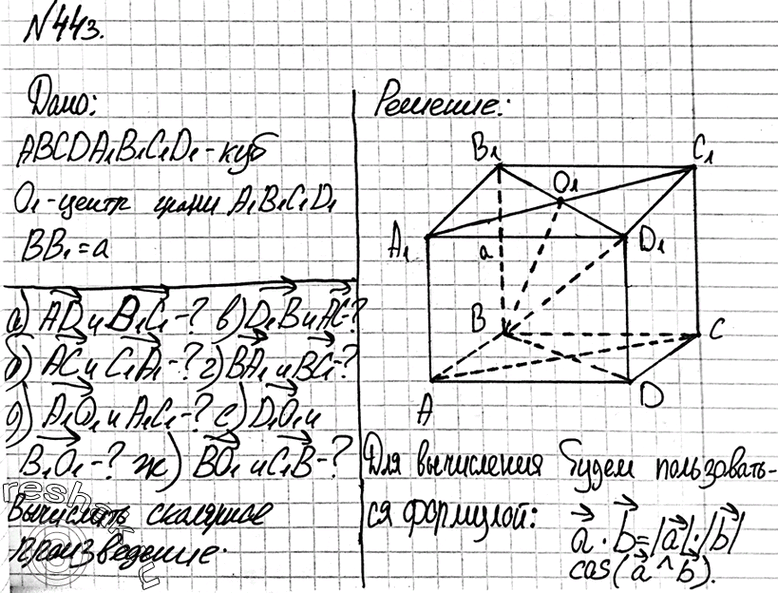 №443.
Дано:
ABCDA₁B₁C₁D₁-куб
O₁-центр грани A₁B₁C₁D₁
BB₁=a
а) AD и B₁C₁-? в) D₁B и AC-?
б) AC и C₁A₁-? г) BA₁ и BC₁-?
д) A₁O₁ и A₁C₁-? е) D₁O₁ и
B₁O₁-? ж) BO₁ и C₁B-?
Вычислить скалярное
произведение.
Решение:
B₁
C₁
O₁
A₁
a
D₁
B
C
A
D
Для вычисления будем пользовать-
ся формулой: a · b = |a| · |b|
cos(a ^ b).
reshak